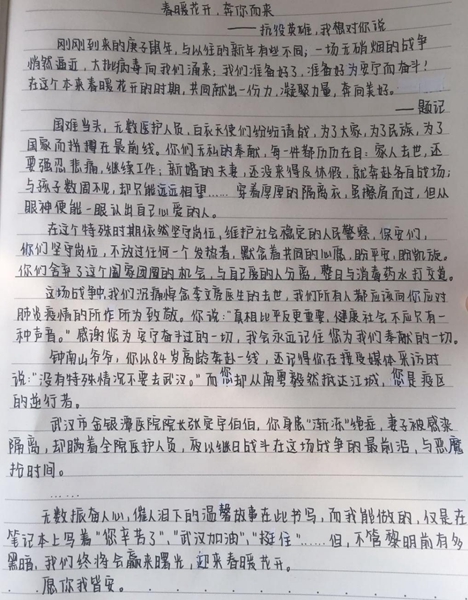 春暖花开,奔你而来
——抗疫英雄,我想对你说
刚刚到来的庚子鼠年,与以往的新年有些不同,一场无硝烟的战争
悄然逼近,大批病毒向我们涌来,我们准备好了,准备好为安宁而奋斗!
在这个本来春暖花开的时期,共同献出一份力,凝聚力量,奔向美好。
——题记
国难当头,无数医护人员,白衣天使们纷纷请战,为了大家,为了民族,为了
国家而挡搁在最前线。你们无私的奉献,每一件都历历在目:家人去世,还
要强忍悲痛,继续工作;新婚的夫妻,还没来得及休假,就奔赴各自战场;
与孩子数周不见,却只能远远相望……穿着厚厚的隔离衣,虽擦肩而过,但从
眼神便能一眼认出自己心爱的人。
在这个特殊时期依然坚守岗位,维护社会稳定的人民警察,保安们,
你们坚守岗位,不放过任何一个发热者,默念着共同的心愿,盼平安,盼凯旋。
你们舍弃了这个阖家团圆的机会,与自己的人分离,整日与消毒药水打交道。
这场战争中,我们沉痛悼念李文亮医生的去世,我们所有人都应该向你应对
肺炎疫情的所作所为致敬。你说:"真相比平反更重要,健康社会不应只有一
种声音。"感谢您为安宁奋斗过的一切,我会永远记住您为我们奉献的一切。
钟南山爷爷,你以84岁高龄奔赴一线,还记得你在接受媒体采访时
说:"没有特殊情况不要去武汉。"而您却从南粤毅然抵达江城,您是疫区
的逆行者。
武汉市金银潭医院院长张定宇伯伯,你身患"渐冻"绝症,妻子被感染
隔离,却瞒着全院医护人员,夜以继日战斗在这场战争的最前沿,与恶魔
抢时间。
……
无数振奋人心,催人泪下的温馨故事在此书写,而我能做的,仅是在
笔记本上写着"您辛苦了","武汉加油","挺住"……但,不管黎明前有多
黑暗,我们终将会赢来曙光,迎来春暖花开。
愿你我皆安。